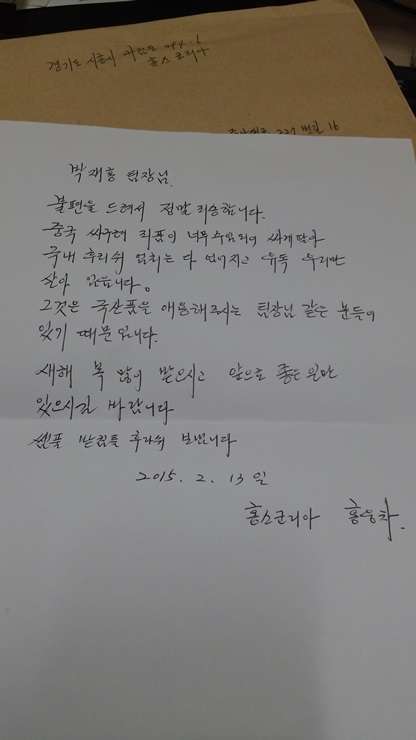 경기도 시흥시
홍스코리아
227 번길 16
박재홍 팀장님.
불편을 드려서 정말 죄송합니다.
중국 싸구려 제품이 너무 수입되어 싸게 팔아
국내 후라쉬 업체는 다 없어지고 유독 우리만
살아 있습니다.
그것은 국산품을 애용해주시는 팀장님 같은 분들이
있기 때문입니다.
새해 복 많이 받으시고 앞으로 좋은 일만
있으시길 바랍니다
샘플 받침틀 후라쉬 보냅니다
2015. 2. 13 일
홍스코리아 홍웅차.